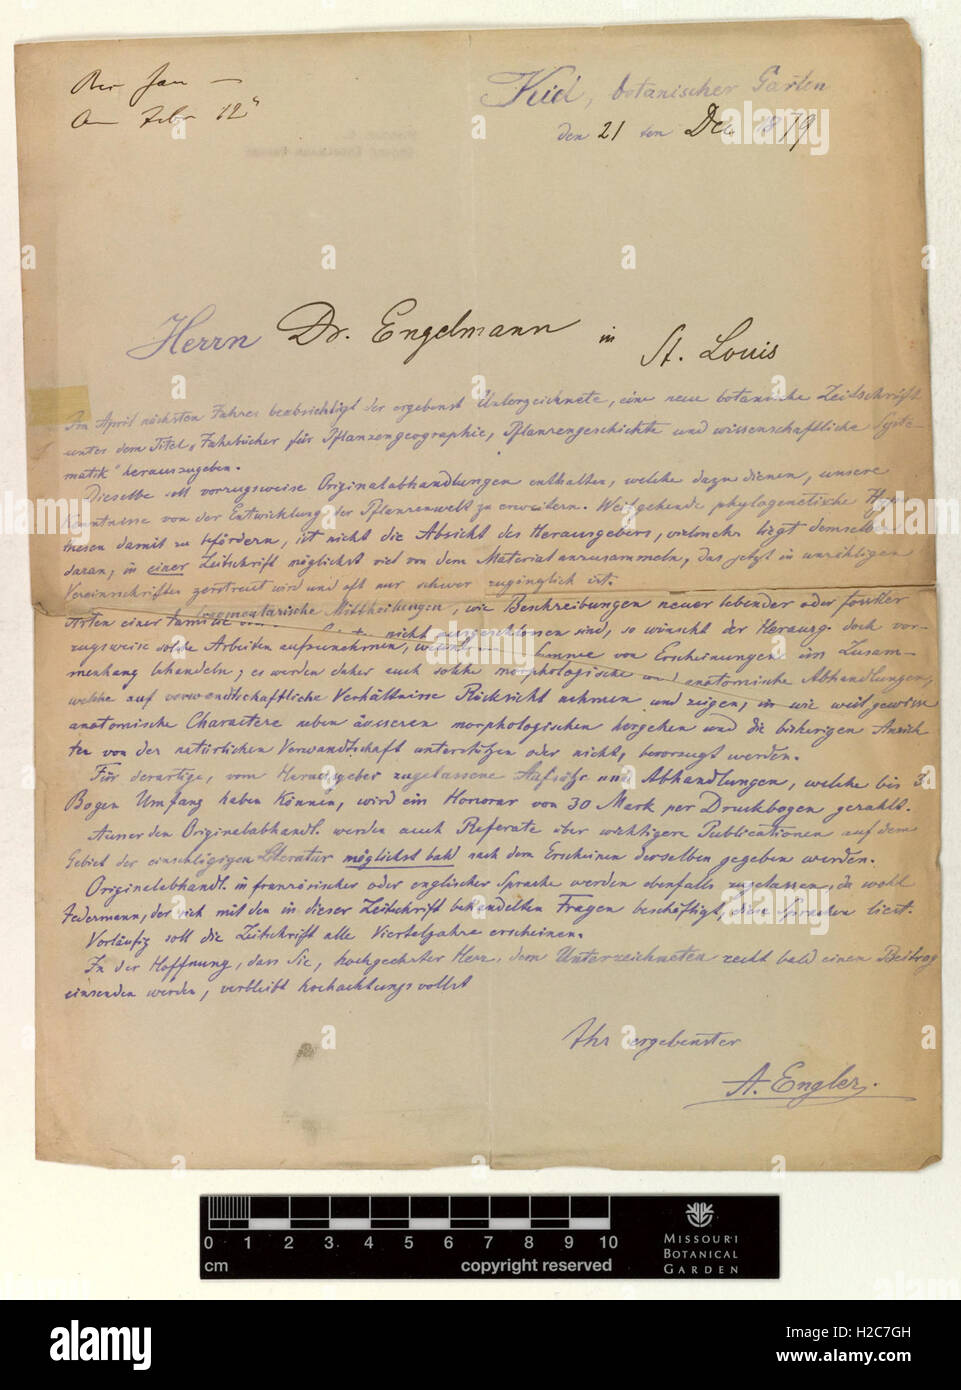 Rec Jan —
An Febr 12"
Kiel, botanischer Garten
den 21 ten Dec 1879
Herrn Dr. Engelmann in St. Louis
Im April nächsten Jahres beabsichtigt der ergebenst Unterzeichnete, eine neue botanische Zeitschrift
unter dem Titel „Jahrbücher für Pflanzengeographie, Pflanzengeschichte und wissenschaftliche Syste-
matik" herauszugeben.
Dieselbe soll vorzugsweise Originalabhandlungen enthalten, welche dazu dienen, unsere
Kenntnisse von der Entwicklung der Pflanzenwelt zu erweitern. Weitgehende phylogenetische Hypo-
thesen damit zu befördern, ist nicht die Absicht des Herausgebers, vielmehr liegt demselben
daran, in einer Zeitschrift möglichst viel von dem Material anzusammeln, das jetzt in unzähligen
Vereinsschriften zerstreut wird und oft nur schwer zugänglich ist.
fragmentarische Mittheilungen, wie Beschreibungen neuer lebender oder fossiler
Arten einer Familie nicht ausgeschlossen sind, so wünscht der Herausg. doch vor-
zugsweise solche Arbeiten aufzunehmen, welche von Erscheinungen im Zusam-
menhang behandeln; es werden daher auch solche morphologische und anatomische Abhandlungen,
welche auf verwandtschaftliche Verhältnisse Rücksicht nehmen und zeigen, in wie weit gewisse
anatomische Charactere neben äusseren morphologischen hergehen und die bisherigen Ansich
ten von der natürlichen Verwandtschaft unterstützen oder nicht, bevorzugt werden.
Für derartige, vom Herausgeber zugelassene Aufsätze und Abhandlungen, welche bis 3
Bogen Umfang haben können, wird ein Honorar von 30 Mark per Druckbogen gezahlt.
Ausser den Originalabhandl. werden auch Referate über wichtigere Publicationen auf dem
Gebiet der einschlägigen Literatur möglichst bald nach dem Erscheinen derselben gegeben werden.
Originalabhandl. in französischer oder englischer Sprache werden ebenfalls zugelassen, da wohl
Jedermann, der sich mit den in dieser Zeitschrift behandelten Fragen beschäftigt, diese Sprachen liest.
Vorläufig soll die Zeitschrift alle Vierteljahre erscheinen.
In der Hoffnung, dass Sie, hochgeehrter Herr, dem Unterzeichneten recht bald einen Beitrag
einsenden werden, verbleibt hochachtungsvollst
Ihr ergebenster
A. Engler.
0 1 2 3 4 5 6 7 8 9 10
cm copyright reserved
MISSOURI
BOTANICAL
GARDEN
alamy
Image ID: H2C7GH
www.alamy.com